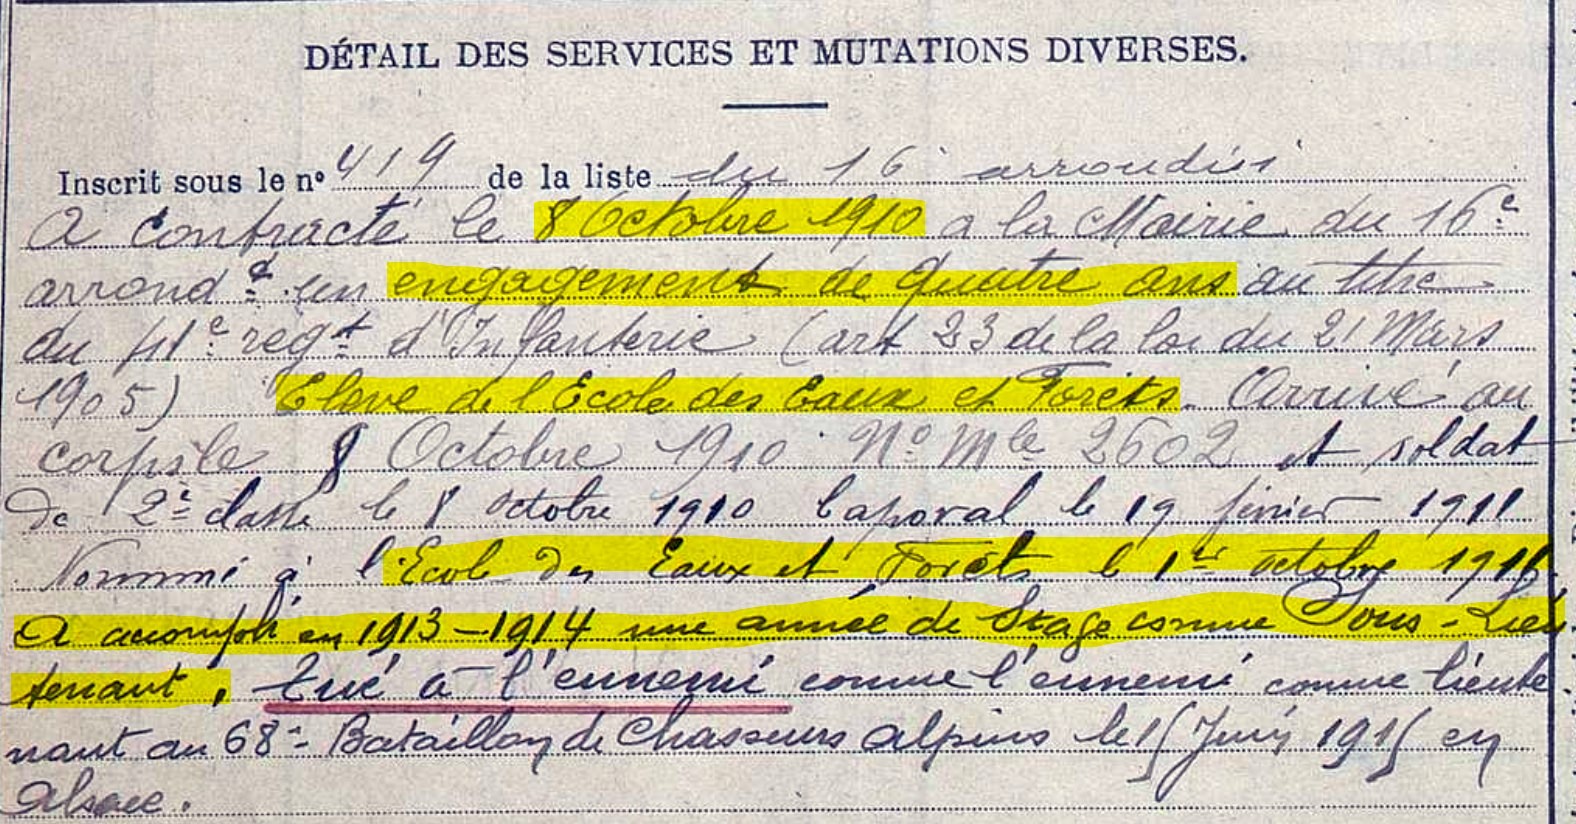 DÉTAIL DES SERVICES ET MUTATIONS DIVERSES.
Inscrit sous le n° 419 de la liste du 16 arrondist
A contracté le 8 Octobre 1910 a la Mairie du 16e
arrondt un engagement de quatre ans au titre
du 41e regt d'Infanterie (art 23 de la loi du 21 Mars
1905) Elève de l'Ecole des Eaux et Forêts. Arrivé au
corps le 8 Octobre 1910 No Mle 2602 et soldat
de 2e classe le 8 octobre 1910 Caporal le 19 février 1911
Nommé à l'Ecole des Eaux et Forêts le 1er octobre 1911
A accompli en 1913-1914 une année de Stage comme Sous-Lieu
tenant, tué à l'ennemi comme l'ennemi comme lieute
nant au 68e Bataillon de Chasseurs alpins le 15 Juin 1915 en
Alsace.